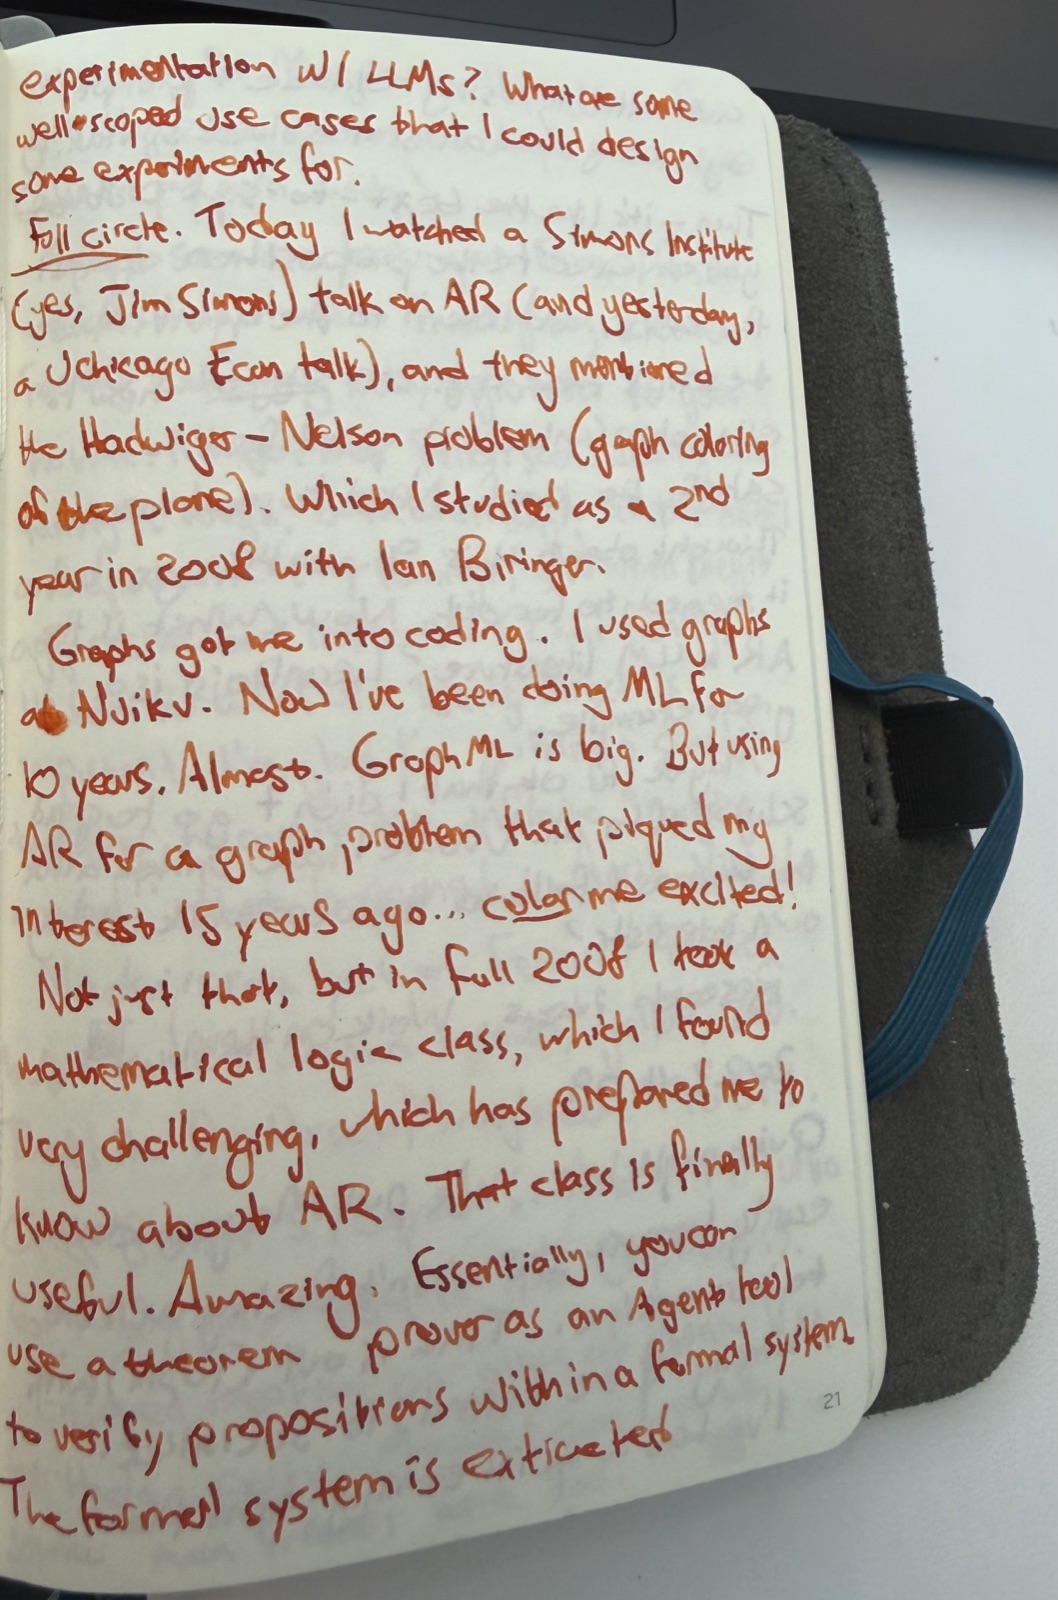 experimentation w/ LLMs? What are some
well-scoped use cases that I could design
some experiments for.
Full circle. Today I watched a Simons Institute
(yes, Jim Simons) talk on AR (and yesterday,
a UChicago Econ talk), and they mentioned
the Hadwiger-Nelson problem (graph coloring
of the plane). Which I studied as a 2nd
year in 2008 with Ian Biringer.
Graphs got me into coding. I used graphs
at Nuiku. Now I've been doing ML for
10 years. Almost. Graph ML is big. But using
AR for a graph problem that piqued my
interest 15 years ago... color me excited!
Not just that, but in Fall 2008 I took a
mathematical logic class, which I found
very challenging, which has prepared me to
know about AR. That class is finally
useful. Amazing. Essentially, you can
use a theorem prover as an Agent tool
to verify propositions within a formal system.
The formal system is
21